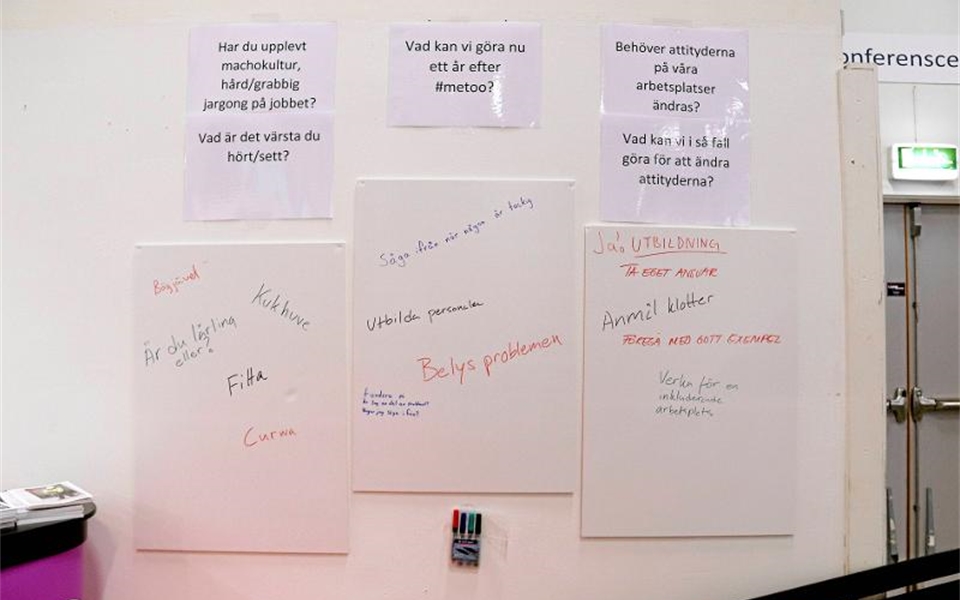 Har du upplevt
machokultur,
hård/grabbig
jargong på jobbet?
Vad är det värsta du
hört/sett?
Bögjävel
Kukhuve
Är du lärling
eller?
Fitta
Curwa
Vad kan vi göra nu
ett år efter
#metoo?
Säga ifrån när någon är taskig
Utbilda personalen
Belys problemen
Fundera på
Behöver attityderna
på våra
arbetsplatser
ändras?
Vad kan vi i så fall
göra för att ändra
attityderna?
Ja! UTBILDNING
TA EGET ANSVAR
Anmäl klotter
FÖREGÅ MED GOTT EXEMPEL
Verka för en
inkluderande
arbetsplats
onferensce